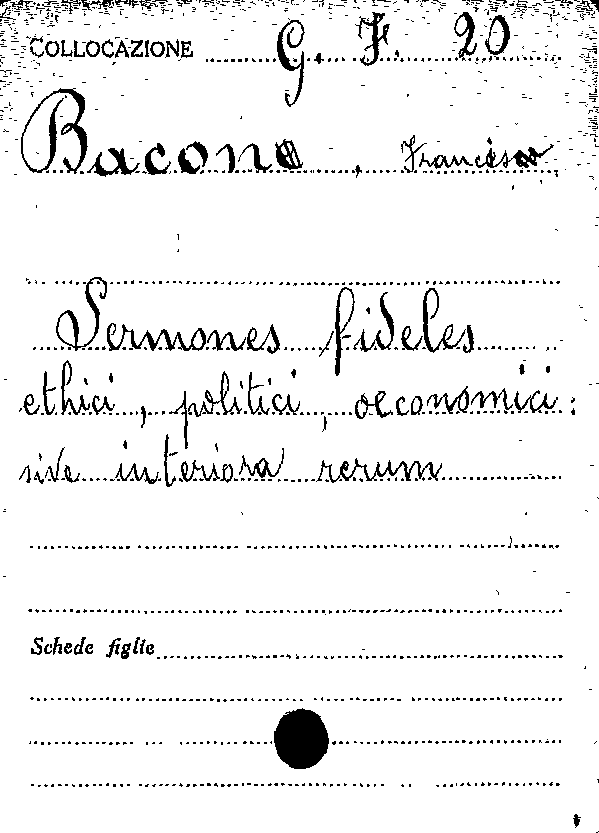 COLLOCAZIONE G. F. 20
Bacone, Francesco
Sermones fideles
ethici, politici, oeconomici:
sive interiora rerum
Schede figlie